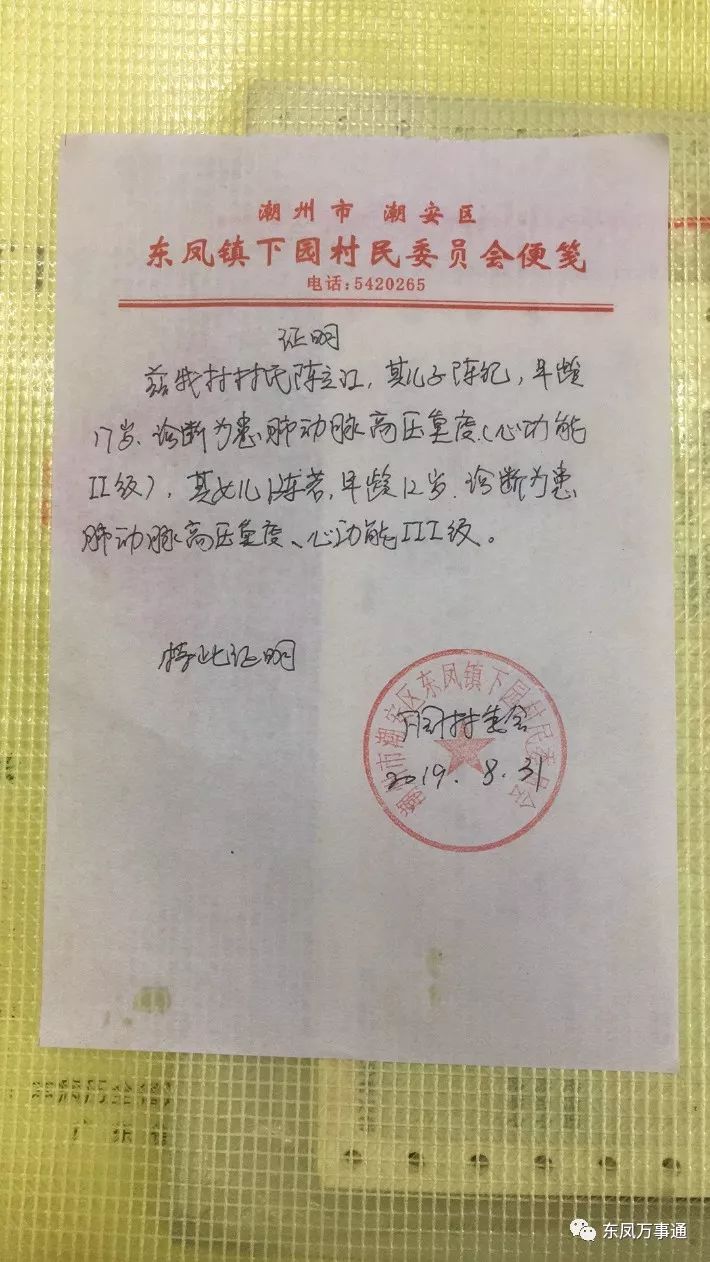 潮州市 潮安区
东凤镇下园村民委员会便笺
电话:5420265
证明
兹我村村民陈立江，其儿子陈纪，年龄
17岁、诊断为患肺动脉高压重度（心功能
II级），其女儿陈若，年龄12岁.诊断为患
肺动脉高压重度、心功能III级。
特此证明
潮州市潮安区东凤镇下园村民委员会
下园村委会
2019.8.31
东凤万事通